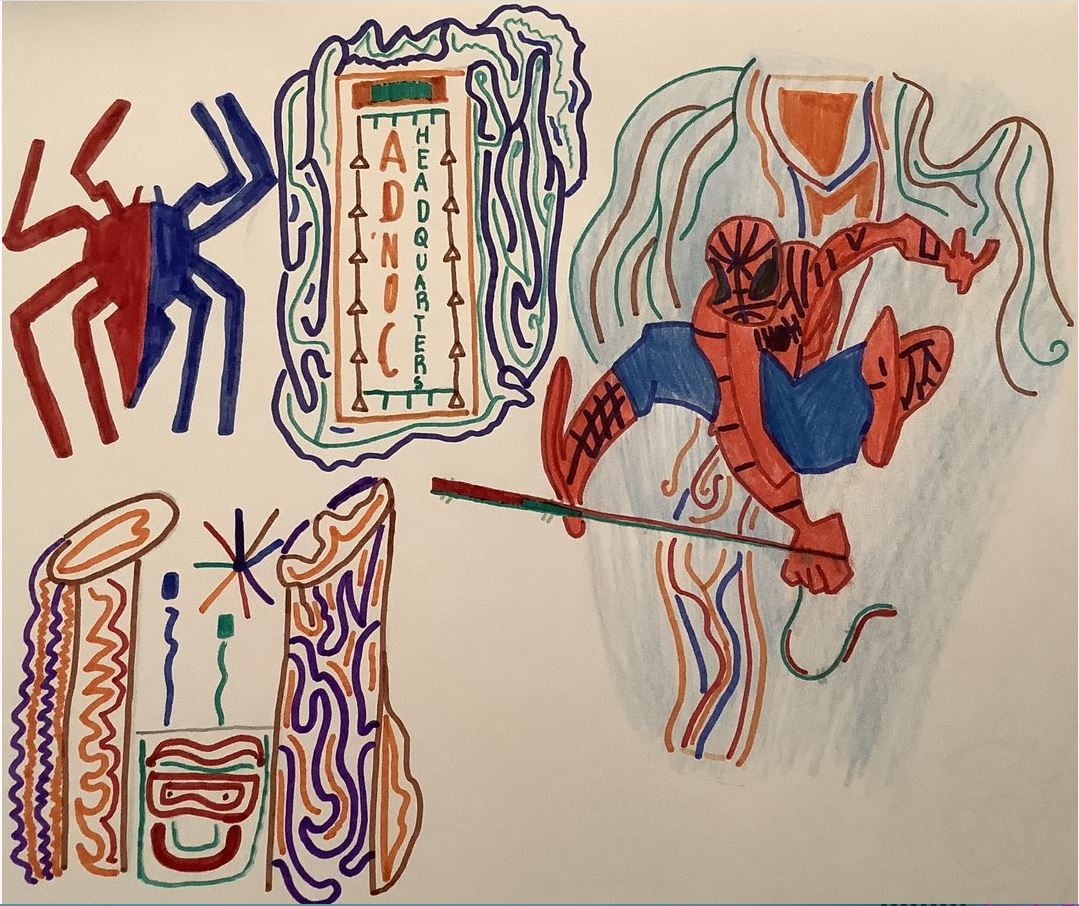 AD'NOC
HEADQUARTERS
M